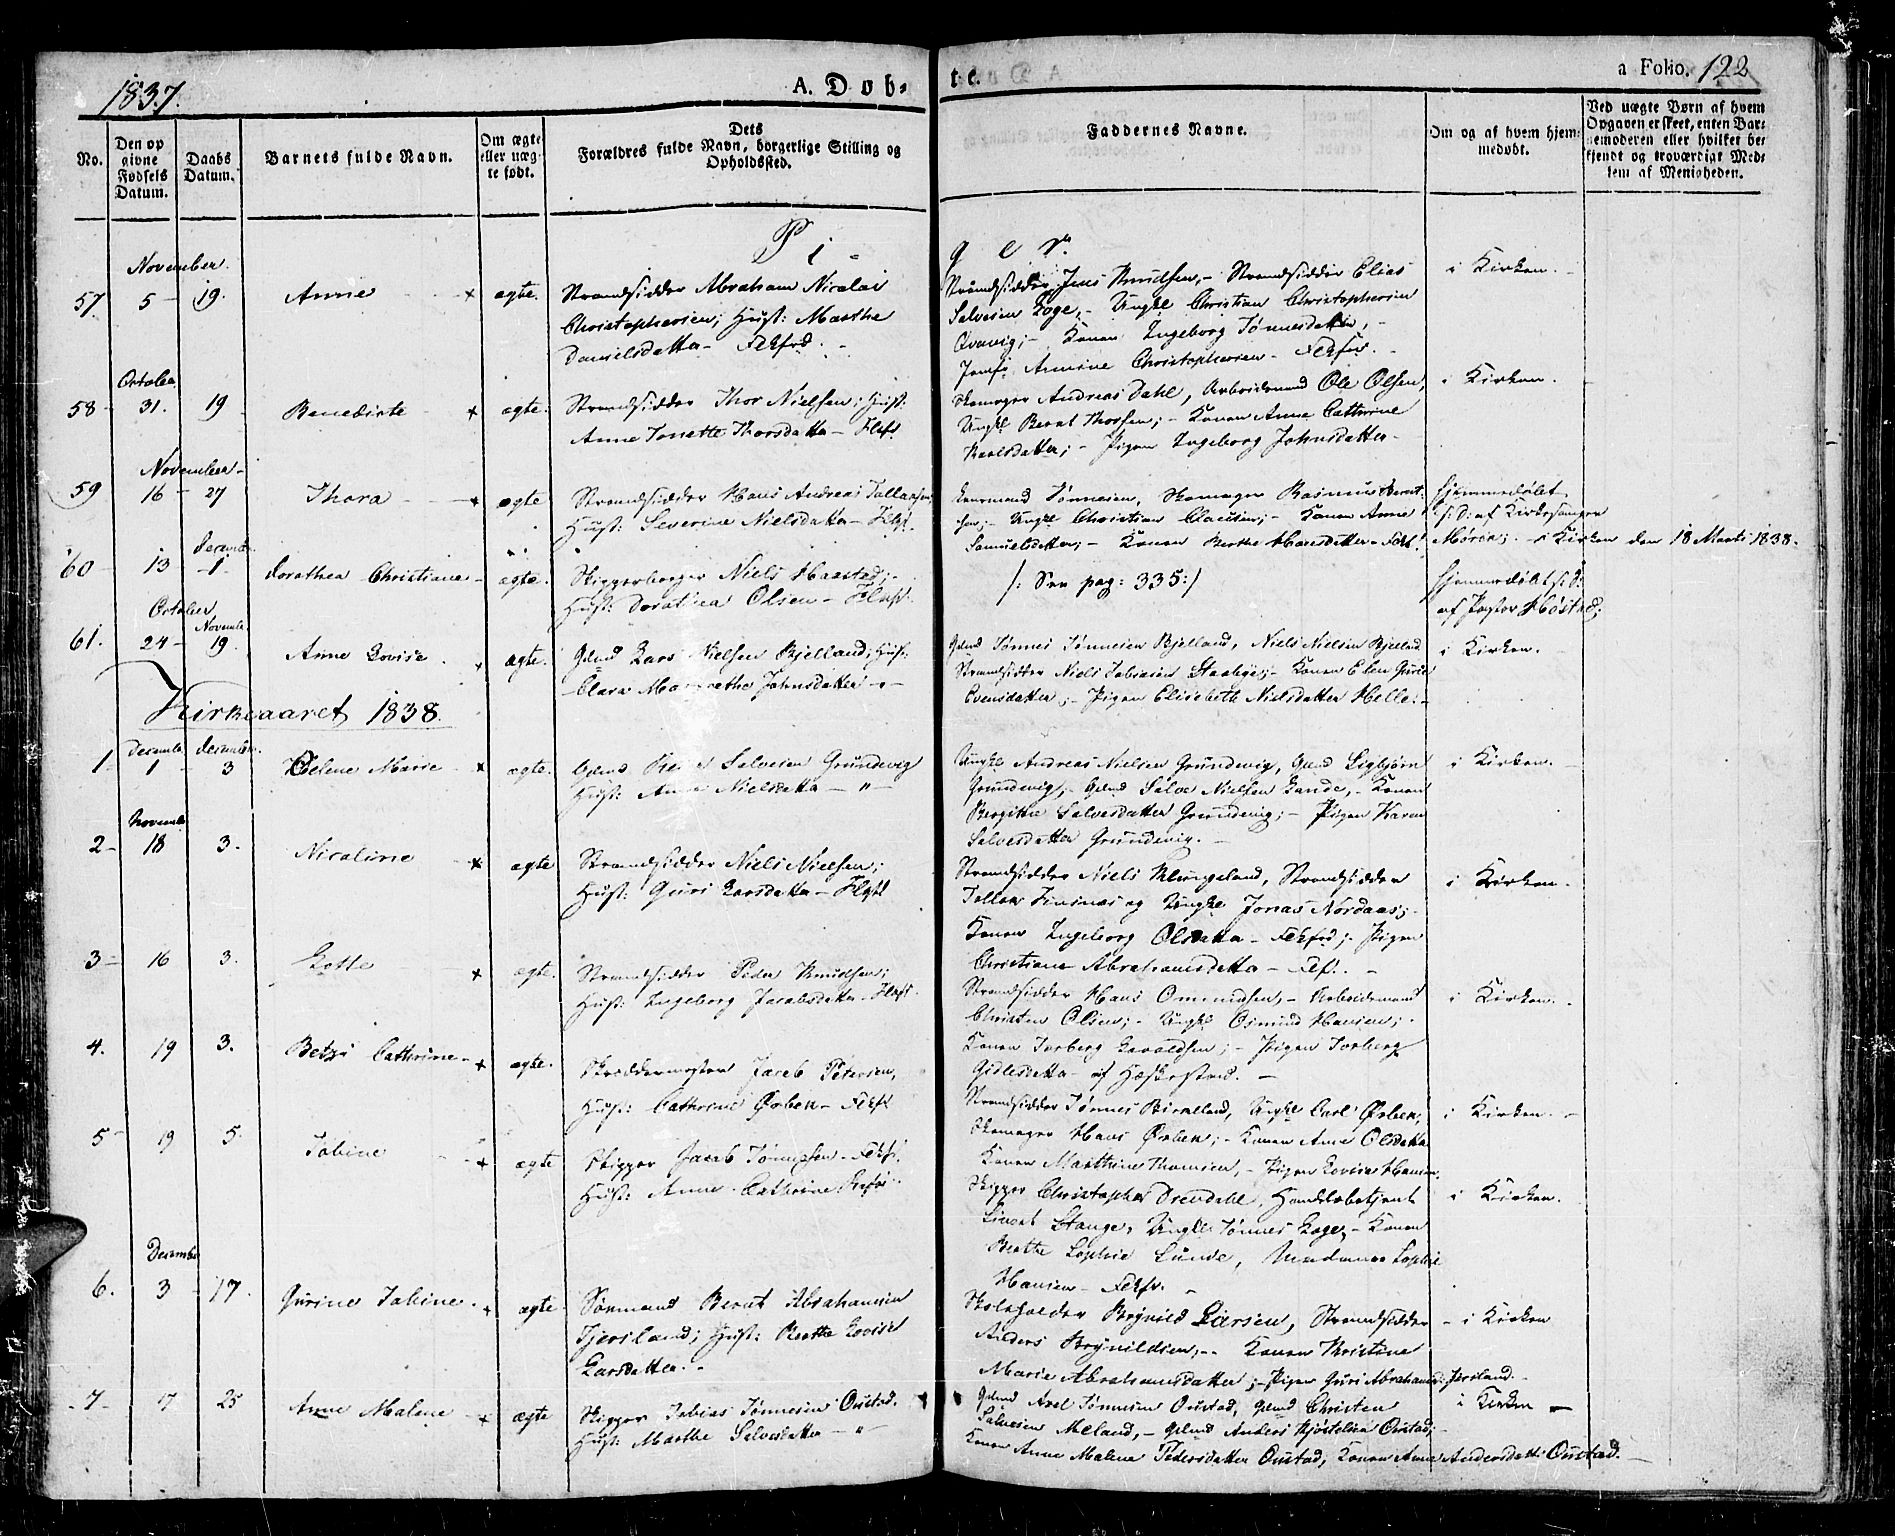 1837.
A. Døb-
te.
a Folio. 122
No.
Den op
givne
Fødsels
Datum.
Daabs
Datum.
Barnets fulde Navn.
Om ægte
eller uæg-
te født.
Dets
Forældres fulde Navn, borgerlige Stilling og
Opholdssted.
Faddernes Navne.
Om og af hvem hjem-
medøbt.
Ved uægte Børn af hvem
Opgaven er skeet, enten Bar-
nemoderen eller hvilket be-
kjendt og troværdigt Med-
lem af Menigheden.
P i -
g e r.
November.
57 5 - 19. Anne - x ægte. Strandsidder Abraham Nicolai
Christophersen; Hust: Marthe
Danielsdatter - Fekfrd. -
Strandsidder Jens Knudsen, - Strandsidder Elias
Salvesen Loge, - Ungkl Christian Christophersen
Qvavig; - Konen Ingeborg Tønnesdatter, -
Jomfr Annine Christophersen - Fekfrd. -
i Kirken. -
October
58 - 31. 19 - Benedicte - x ægte. Strandsidder Thor Nielsen; Hust:
Anne Tonette Thorsdatter - Flkf.
Skomager Andreas Dahl, Arbeidsmand Ole Olsen,
Ungkl Bernt Thorsen; - Konen Anne Cathrine
Karlsdatter; - Pigen Ingeborg Johnsdatter -
i Kirken.
November -
59 16 - 27 Thora - x ægte Strandsidder Hans Andreas Tallaksen,
Hust: Severine Nielsdatter - Flkf.
Tønnesen, Skomager Rasmus Bernt-
sen; - Ungkl Christian Clausen; - Konen Anne
Samuelsdatter; - Konen Berthe Hansdatter - Fekf.
Hjemmedøbt
/: D: af Kirkesanger
Møren; - i Kirken den 18 Marts 1838.
December
60 - 13 - 1 - Dorothea Christiane - ægte. Skipperborger Niels Haastad; -
Hust: Dorothea Olsen - Flkf.
/: See pag: 335:/
Hjemmedøbt /: D:
af Pastor Høstad;
October
November
61. 24 - 19. Anne Lovise . x ægte. Gdmd Lars Nielsen Bjelland; Hust:
Clara Margrethe Johnsdatter - " -
Gdmd Tønnes Tønnesen Bjelland, Niels Nielsen Bjelland
Strandsidder Niels Tobiasen Stabye; - Konen Elen Gurie
Evensdatter; - Pigen Elisabeth Nielsdatter Helle: -
i Kirken. -
Kirkeaaret 1838.
December December.
1 - 1 - 3 Helene Marie - x ægte. Gdmd Salvesen Grundevig
Hust: Anne Nielsdatter - " -
Ungkl Andreas Nielsen Grundevig, Gdmd Sigbjørn
Grundevig; - Gdmd Salve Nielsen Sande, - Konen
Bergitte Salvesdatter Grundevig; - Pigen Karen
Salvesdatter Grundevig. -
i Kirken. -
November
2 - 18 3. Nicoline - x ægte Strandsidder Niels Nielsen;
Hust: Guri Larsdatter - Flkf
Strandsidder Niels Klungeland, Strandsidder
Tallak og Ungkl Jonas Nordaas; -
Konen Ingeborg Olsdatter - Fekfrd; - Pigen
Christiane Abrahamsdatter - Fekf. -
i Kirken -
3 - 16 3. Lotte - x ægte. Strandsidder Peder Knudsen;
Hust: Ingeborg Jacobsdatter - Flkf.
Strandsidder Hans Omundsen, - Arbeidsmand
Christen Olsen; - Ungkl Osmund Hansen; -
Konen Torberg ; - Pigen Torberg
Gidlesdatter - af Hæskestad. -
i Kirken. -
4. 19 3. Betzi Cathrine - x ægte. Skreddermester Jacob Petersen,
Hust: Cathrine Ørbek - Fekf
Strandsidder Tønnes Birkeland, Ungkl Carl Ørbek,
Skomager Hans Ørbek; - Konen Anne Olsdatter
Konen Marthine Thomsen, - Pigen Lovise Hansen.
i Kirken. -
5 - 19 5. Tobine - x ægte Skipper Jacob Tønnesen - Fekf.
Hust: Anne Cathrine
Skipper Christopher Drendahl, Handelsbetjent
Sivert Stange, Ungkl Tønnes Loge, - Konen
Berthe Sophie Lunde, Madame Sophie
Hansen - Fekfr. -
i Kirken.
December
6. 3 - 17. Gurine Tobine . x ægte. Sømand Bernt Abrahamsen
Tjersland; Hust: Berthe Lovise
Larsdatter. -
Skoleholder Brynild Larsen, Strandsidder
Anders Brynildsen; - Konen Christine
Marie Abrahamsdatter; - Pigen Guri Abrahamsd: Jersland. -
- i Kirken
- 7 - 17 25 Anne Malene - x ægte Skipper Tobias Tønnesen Oustad.
Hust: Marthe Salvesdatter - "
Gdmd Axel Tønnesen Oustad, Gdmd Christen
Salvesen Meland, - Gdmd Anders Kjøstelsen Oustad; -
Konen Anne Malene Pedersdatter Oustad, Konen Anne Andersdatter Oustad. -
i Kirken -